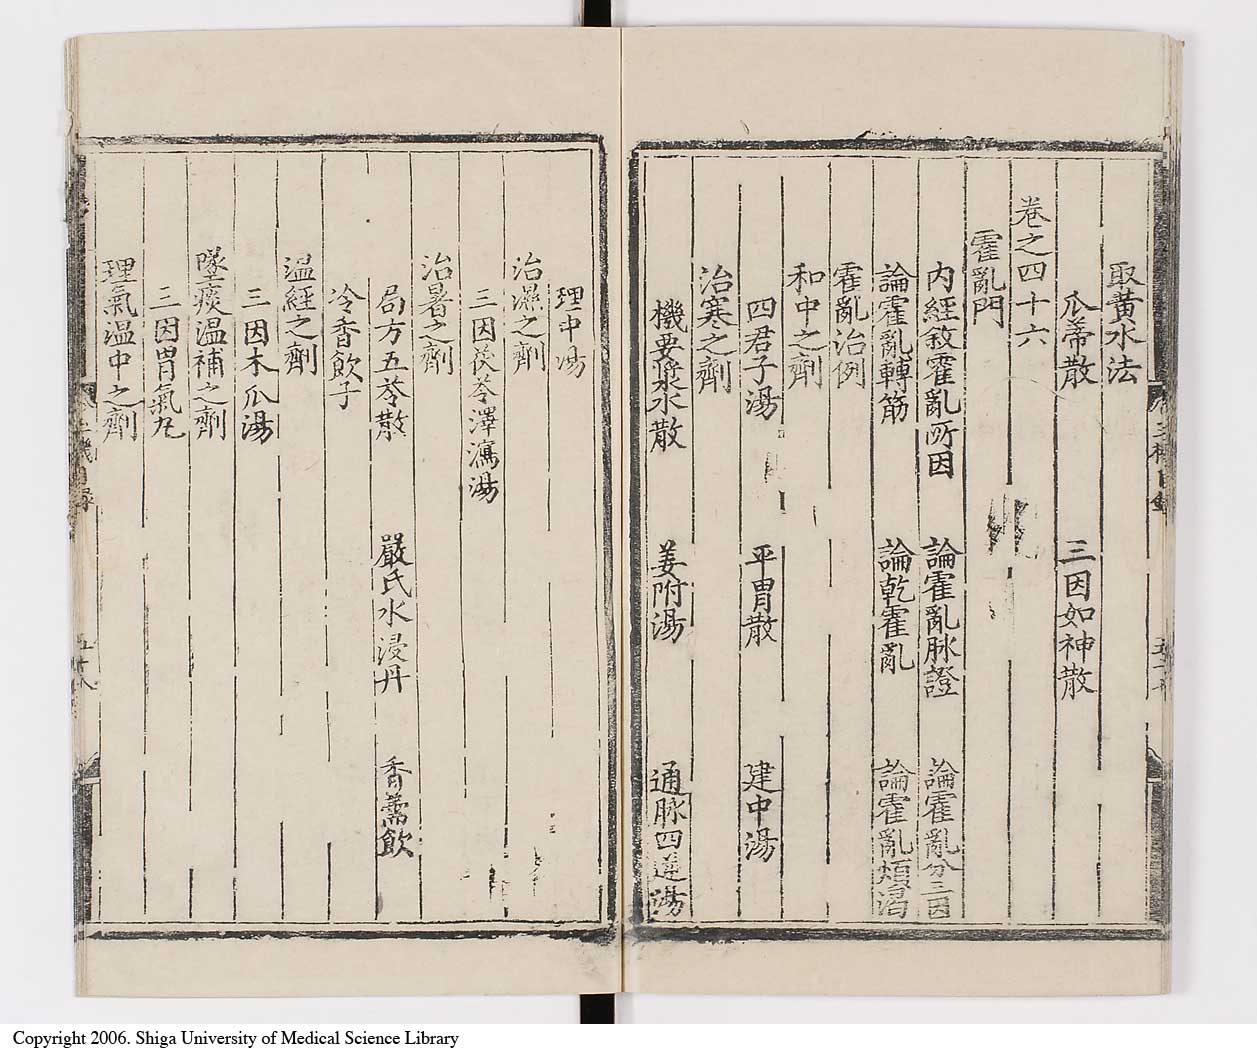 取黃水法
瓜蒂散　三因如神散
卷之四十六
霍亂門
內經敘霍亂所因　論霍亂脉證　論霍亂分三因
論霍亂轉筋　論乾霍亂　論霍亂煩渴
霍亂治例
和中之劑
四君子湯　平胃散　建中湯
治寒之劑
機要漿水散　姜附湯　通脉四逆湯
理中湯
治濕之劑
三因茯苓澤瀉湯
治暑之劑
局方五苓散　嚴氏水浸丹　香薷飲
冷香飲子
溫經之劑
三因木瓜湯
墜痰溫補之劑
三因胃氣丸
理氣溫中之劑
Copyright 2006. Shiga University of Medical Science Library